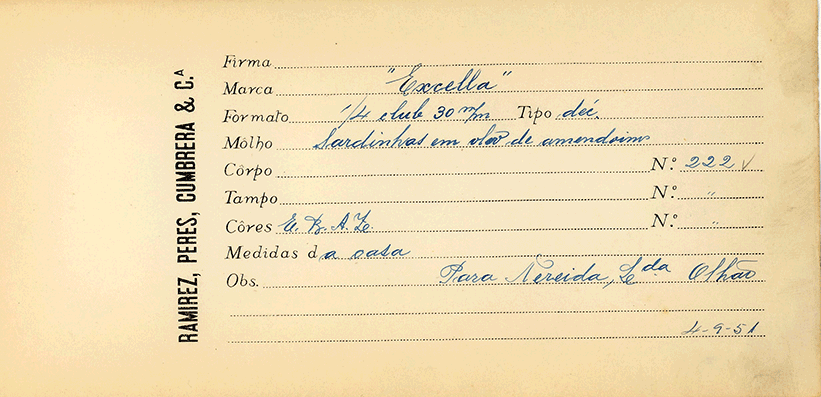 RAMIREZ, PERES, CUMBRERA & C.ª
Firma
Marca "Excella"
Formato 1/4 club 30 m/m Tipo déc.
Môlho Sardinhas em oleo de amendoim
Côrpo N.º 222 v
Tampo N.º "
Côres E. B. A. Z. N.º "
Medidas da casa
Obs. Para Nereida, L.da Olhão
4-9-51